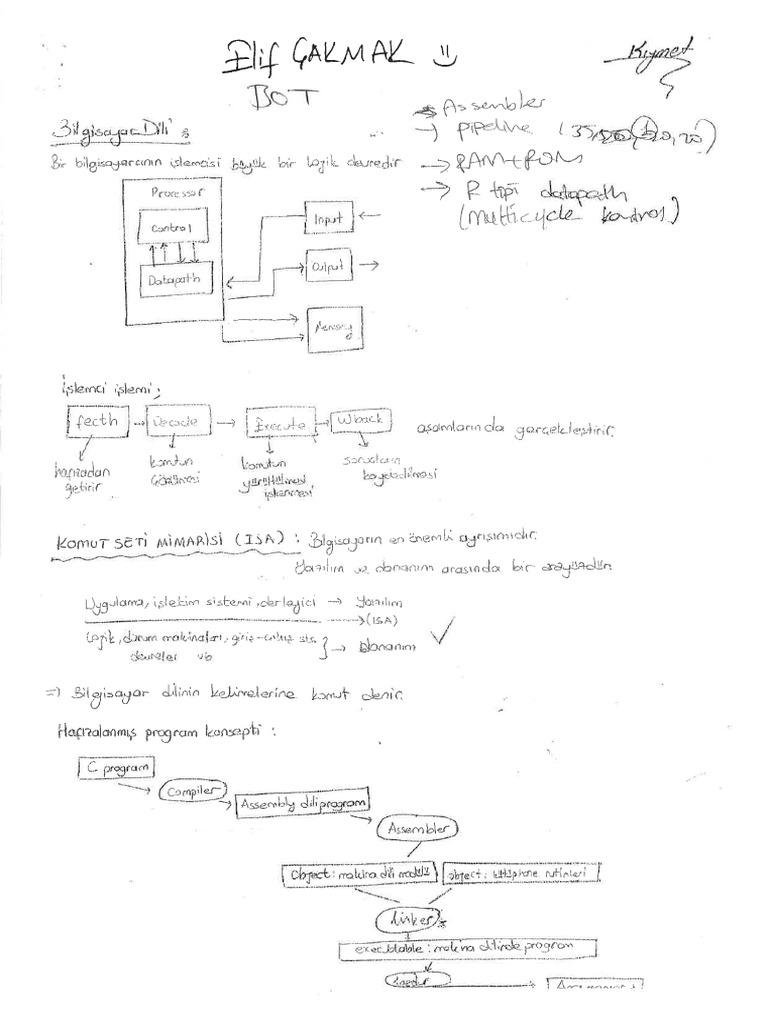 Elif ÇAKMAK
BOT
Kıymet
Assembler
Pipeline
RAM+ROM
R tipi datapath
(Multicycle
Bilgisayar Dili :
Bir bilgisayarının işlemcisi büyük bir lojik devredir
Processor
Control
Datapath
Input
Output
Memory
İşlemci işlemi;
fecth
Decode
Execute
Wback
aşamlarında gerçekleştirir.
hafızadan
getirir
komutun
çözülmesi
komutun
yürütülmesi
işlenmesi
sonucların
kaydedilmesi
KOMUT SETİ MİMARİSİ (ISA) : Bilgisayarın en önemli ayrışımıdır.
Yazılım ve donanım arasında bir arayüzdür.
Uygulama, işletim sistemi, derleyici → Yazılım
→ (ISA)
Lojik, durum makinaları, giriş-çıkış sis.
devreler vb
→ Donanım
=) Bilgisayar dilinin kelimelerine komut denir.
Hafızalanmış program konsepti :
C program
Compiler
Assembly dili program
Assembler
Object: makina dili modülü
object: kütüphane rutinleri
linker
executable: makina dilinde program